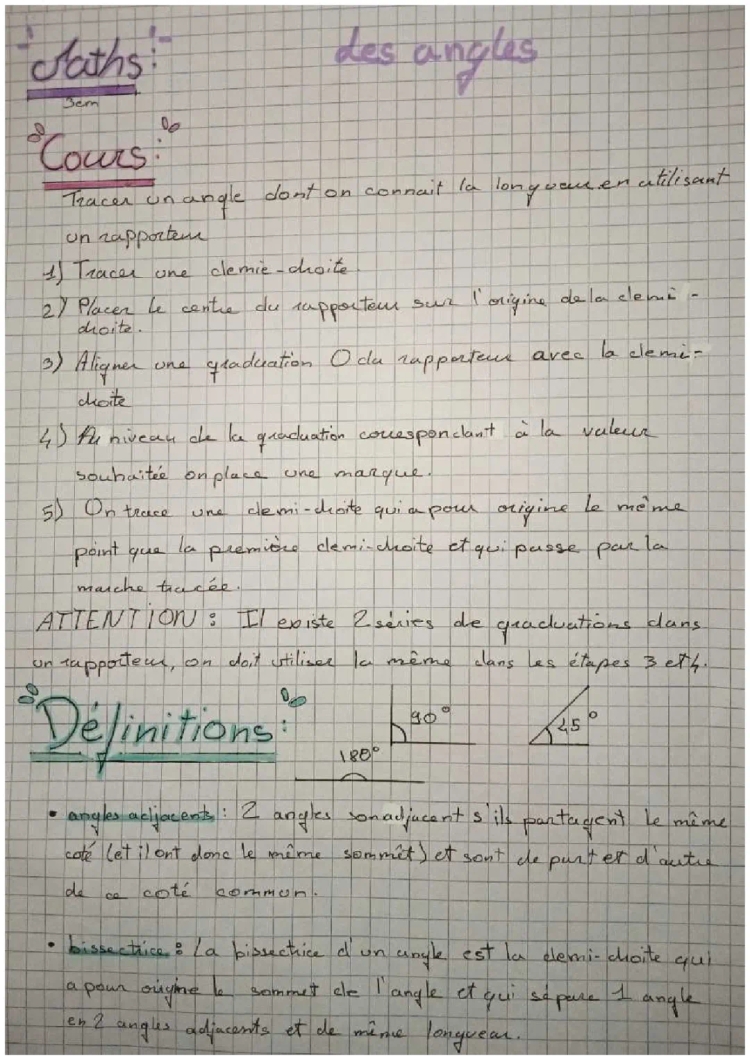 Maths: des angles
3em
Cours:
Tracer un angle dont on connait la longueur en utilisant
un rapporteur
1) Tracer une demie-droite
2) Placer le centre du rapporteur sur l'origine de la demi-
droite.
3) Aligner une graduation 0 du rapporteur avec la demi-
droite
4) Au niveau de la graduation correspondant à la valeur
souhaitée on place une marque.
5) On trace une demi-droite qui a pour origine le même
point que la première demi-droite et qui passe par la
marche tracée.
ATTENTION : Il existe 2 séries de graduations dans
un rapporteur, on doit utiliser la même dans les étapes 3 et 4.
Définitions:
180°
90°
45°
• angles adjacents : 2 angles son adjacent s'ils partagent le même
coté (et il ont donc le même sommêt) et sont de part et d'autre
de ce coté commun.
• bissectrice : La bissectrice d'un angle est la demi-droite qui
a pour origine le sommet de l'angle et qui sépare 1 angle
en 2 angles adjacents et de même longueur.